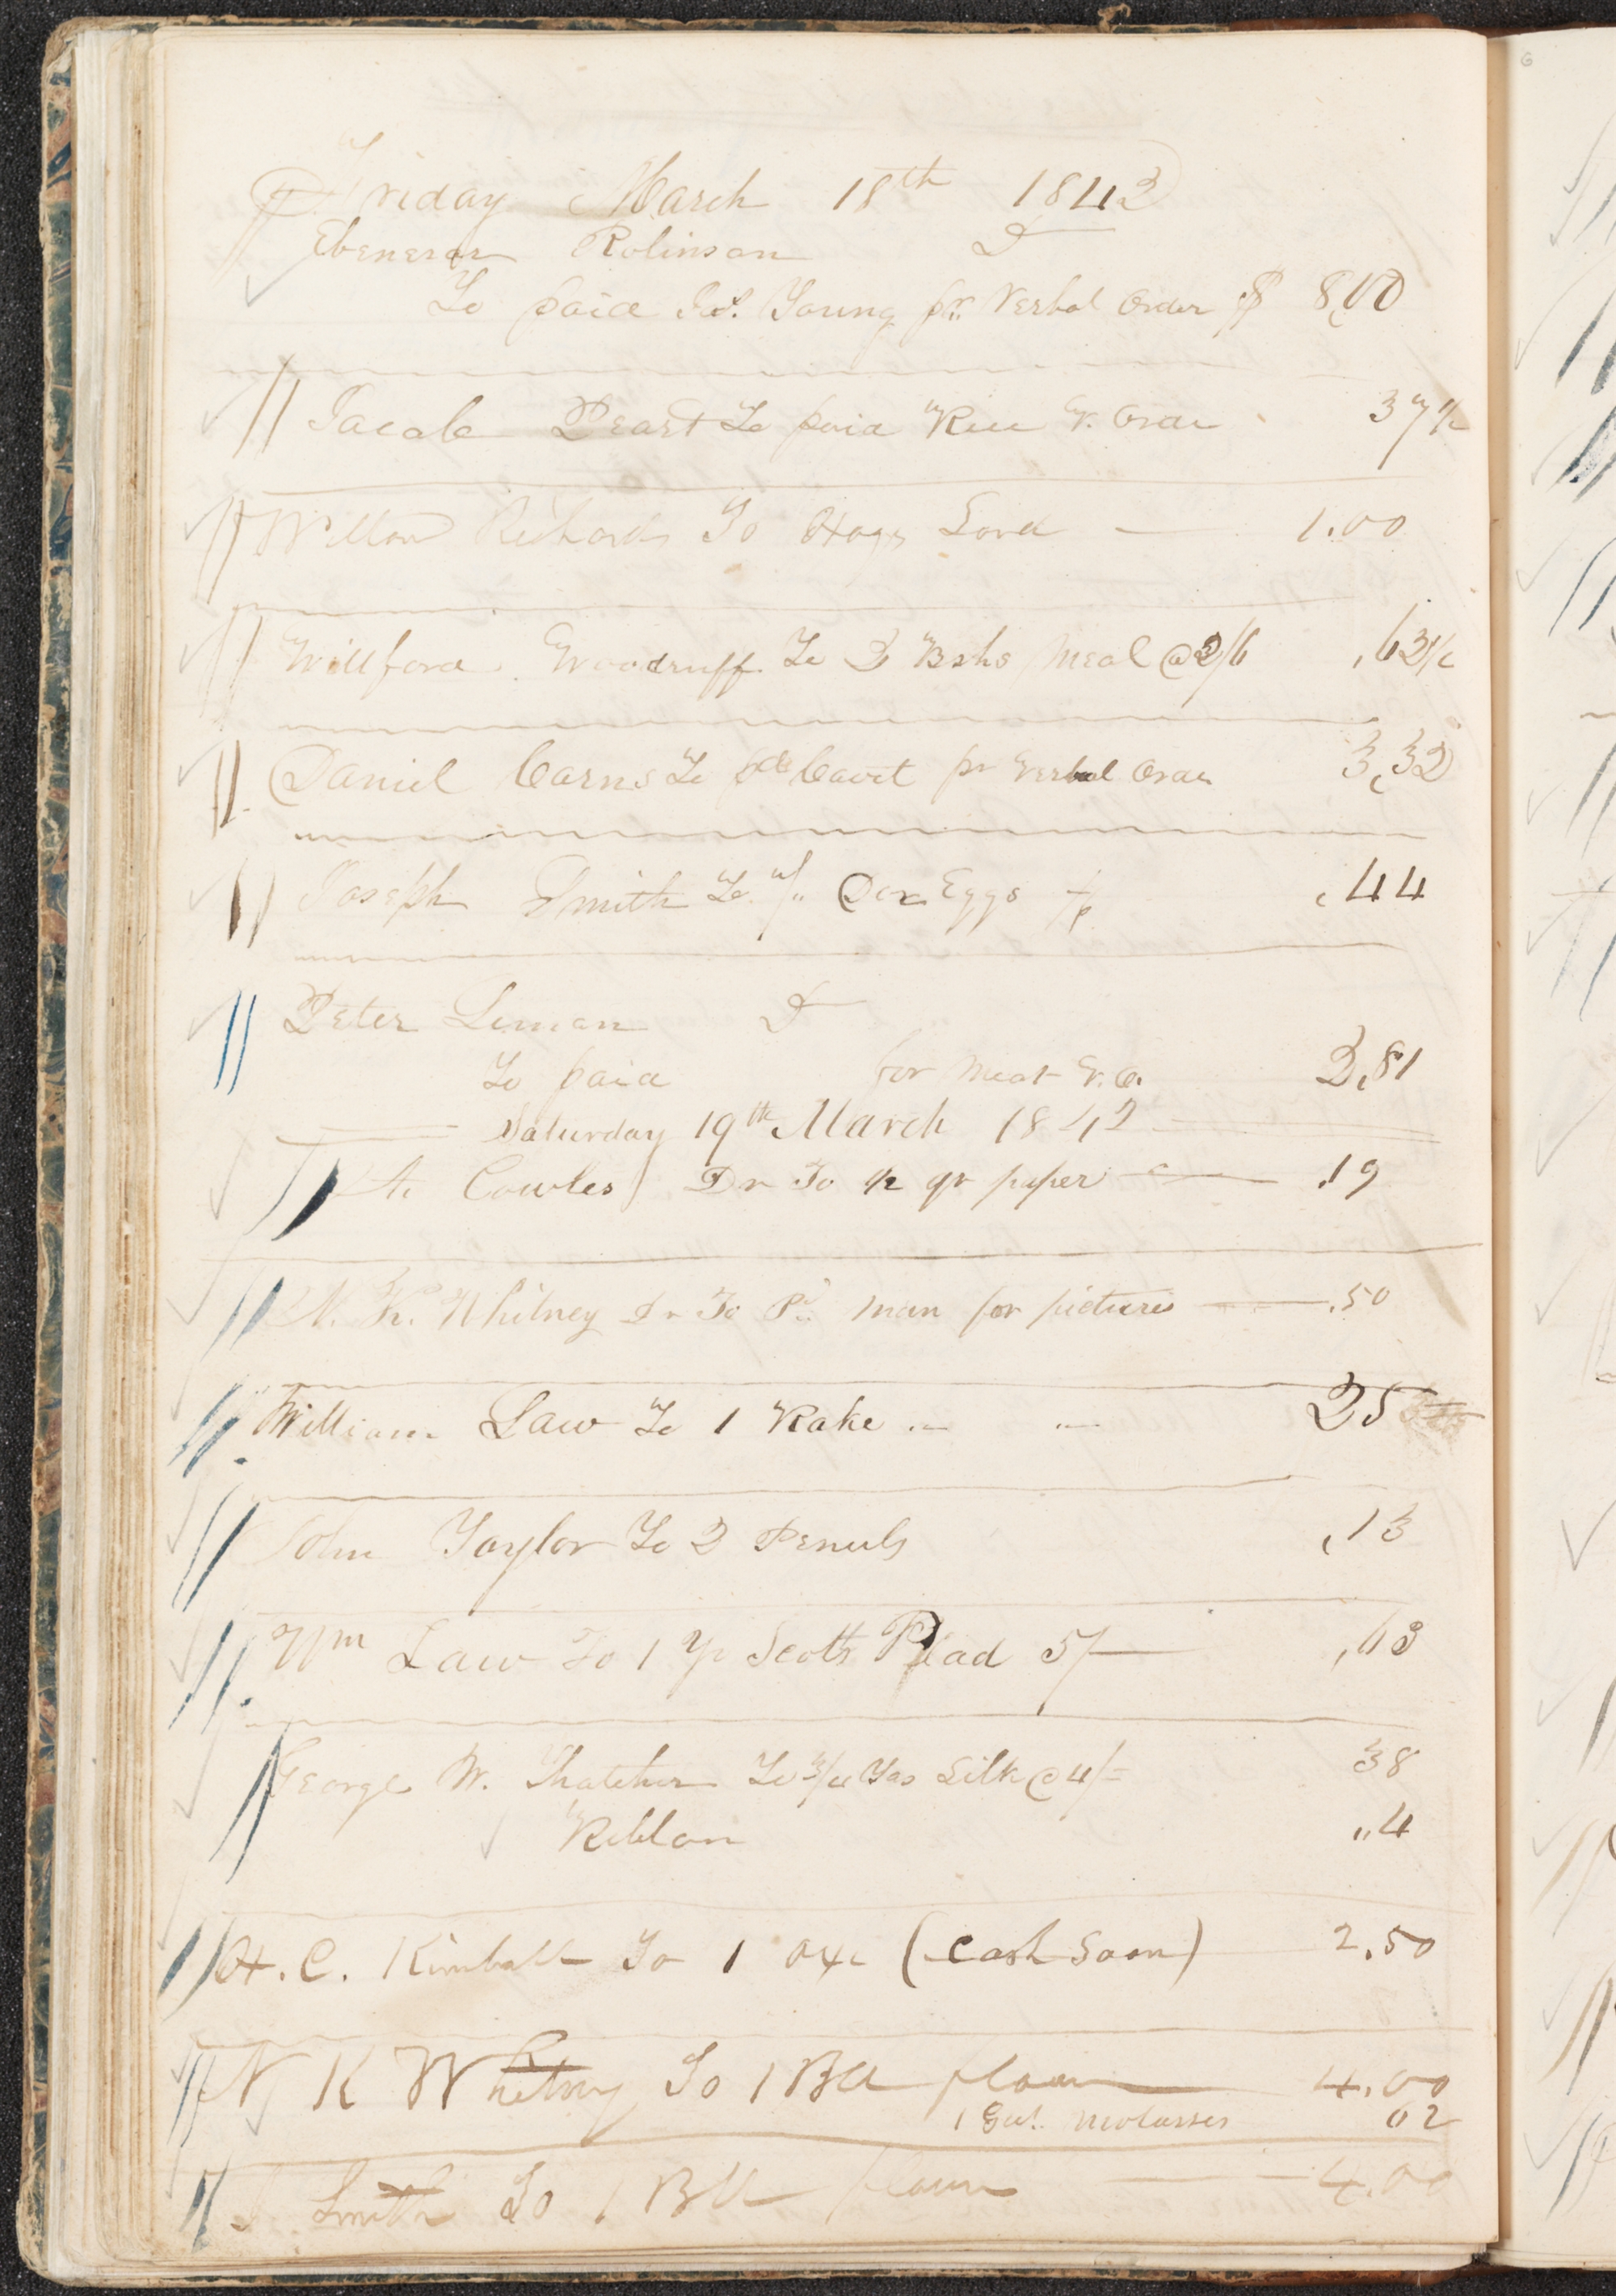 Friday March 18th 1842
Ebenezer Robinson D
To paid Jos. Young pr. Verbal Order $ 8,00
Jacob Peart To paid Rice V. Order 37½
Willard Richards To Hogs Lard — 1.00
Willford Woodruff To 2 Bshs Meal @ 2/6 ,63½
Daniel Carns To pd Cavit pr Verbal Order 3,32
Joseph Smith To 7 Doz Eggs ,44
Peter Liman D
To paid for Meat V.O. 2,81
Saturday 19th March 1842
A. Cowles Dr To ½ qr paper — .19
N. K. Whitney Dr To Pd man for pictures — .50
William Law To 1 Rake 25
John Taylor To 2 Pencils ,13
Wm Law To 1 Yd Scotts Plad 5/— ,63
George W. Thatcher To 3/4 Yds Silk @ 4/= 38
Ribbon ,,4
H. C. Kimball To 1 Axe (Cash Soon) 2,50
N K Whitney To 1 Bll flour — 4.00
1 Gal. Molasses 62
J Smith To 1 Bll flour — 4.00